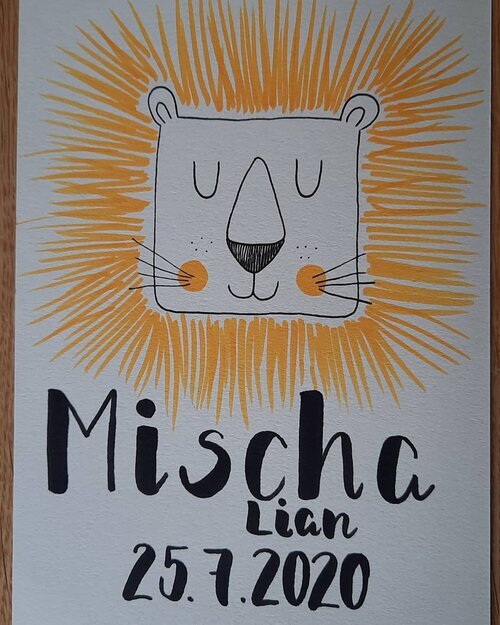 Mischa
Lian
25.7.2020